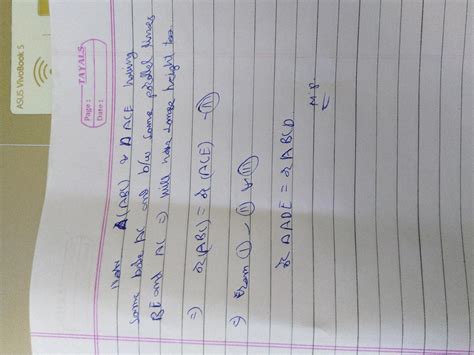 ASUS VivoBook S
TAYALS
Page :
Date :
Now Δ(ABC) & Δ ACE having
same base AC and b/w same parallel lines
BE and AC => will have same height too
=> ar(ABC) = ar (ACE) - (II)
=> From (I) - (II) & (III)
ar ΔADE = ar ABCD
H.P.